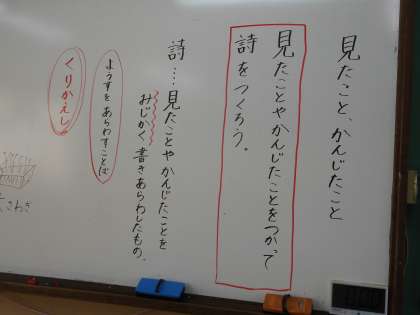 見たこと、かんじたこと
見たことやかんじたことをつかって
詩をつくろう。
詩…見たことやかんじたことを
みじかく書きあらわしたもの。
ようすをあらわすことば
くりかえし